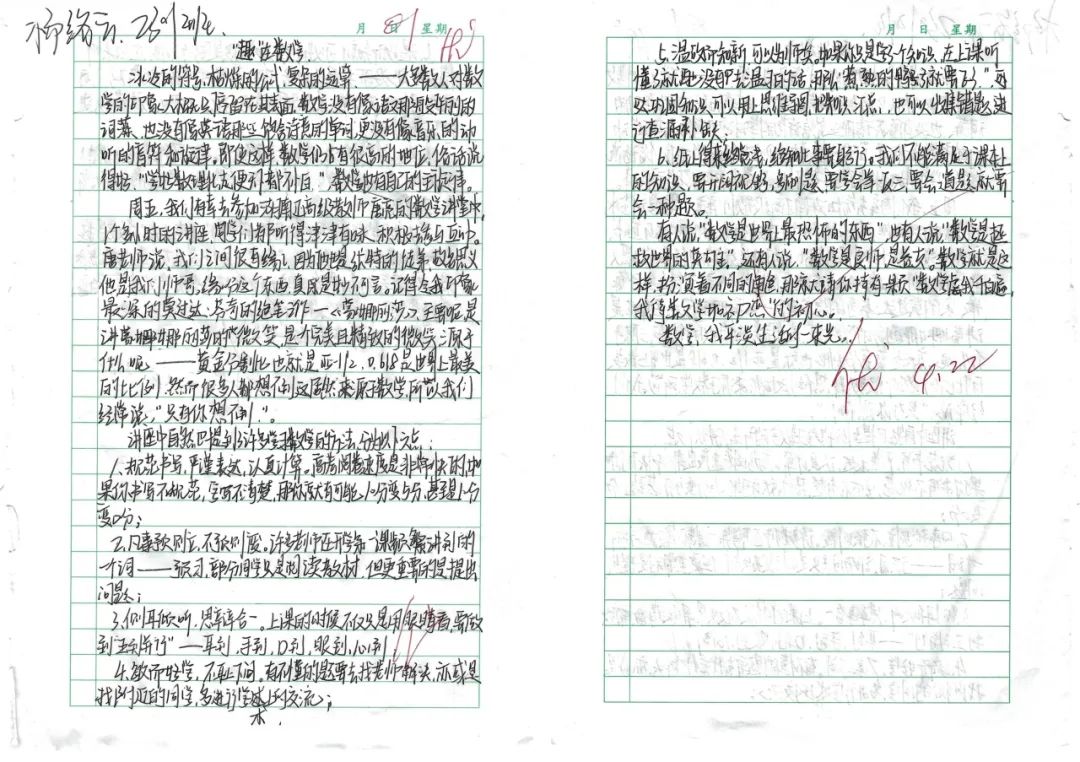 月 日 星期
"趣"在数学
冰冷的符号,枯燥的公式,复杂的运算——大多数人对数
学的印象大概只停留在其表面,数学没有像语文那间奇明的
词藻,也没有像英语那些个性诗意的单词,更没有像音乐的动
听的音符和旋律,即便这样,数学仍占有很高的地位,俗话说
得好:"学好数理化走便天都不怕。"数学也有自己的主旋律。
周五,我们有幸去参加
1个多小时的讲座,同学们都听得津津有味,积极参与互动。
唐老师说,我们之间很有缘,因为他是
他是我们师哥,缘份这个东西真的是妙不可言。记得令我印象
最深的莫过达·芬奇的绝笔之作—《蒙娜丽莎》,主要呢是
讲蒙娜丽莎的"微笑",是个完美且精致的微笑,源于
什么呢——黄金分割比也就是 0.618是世界上最美
的比例,然而很多人都想不到这居然来源于数学,所以我们
经常说,"只有你想不到!"。
讲座中自然也提到了许多学习数学的方法,分为以下六点:
1、规范书写,严谨表达,认真计算。高考阅卷速度是非常快的,如
果你书写不规范,字写不清楚,那你就有可能10分变5分,甚至是10分
变0分;
2、凡事预则立,不预则废。许多老师在开学第一课都会讲到的
一个词——预习,部分同学只是阅读教材,但更重要的是提出
问题;
3、侧耳倾听,思辨合一。上课的时候不仅只是用眼睛看,要做
到"五到并行"——耳到,手到,口到,眼到,心到;
4、敏而好学,不耻下问。有不懂的题要去找老师解决,亦或是
找附近的同学,多进行学术上的交流;
月 日 星期
5、温故而知新,可以为师矣。如果你只是学一个知识,在上课听
懂了就再也没有去温习的话,那么"煮熟的鸭子就要飞了",可
以巩固知识,可以用上思维导图,把知识汇总,也可以出错题,进
行查漏补缺;
6、纸上得来终觉浅,绝知此事要躬行。我们不能满足于课本上
的知识,要开阔视野,多刷题,要学会举一反三,要会一道题,就要
会一种题。
有人说"数学是世界上最恐怖的东西",也有人说"数学是拯
救世界的英雄",还有人说,"数学是良师,是益友"。数学就是这
样,扮演着不同的角色,那就请你持有来源"数学虐我千百遍,
我待数学如初恋"的初心。
数学,我平淡生活的一束光。
4.22